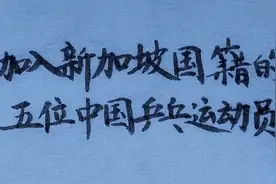 加入新加坡国籍的
五位中国乒乓运动员